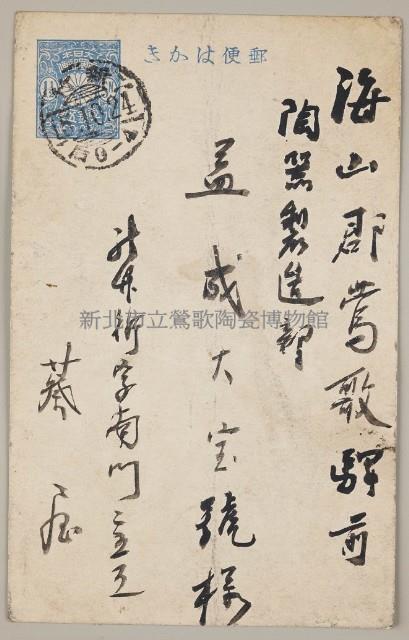 郵便はかき
海山郡鶯歌驛前
陶器製造部
益成大宝號様
新竹街字南門
蔡
新北市立鶯歌陶瓷博物館